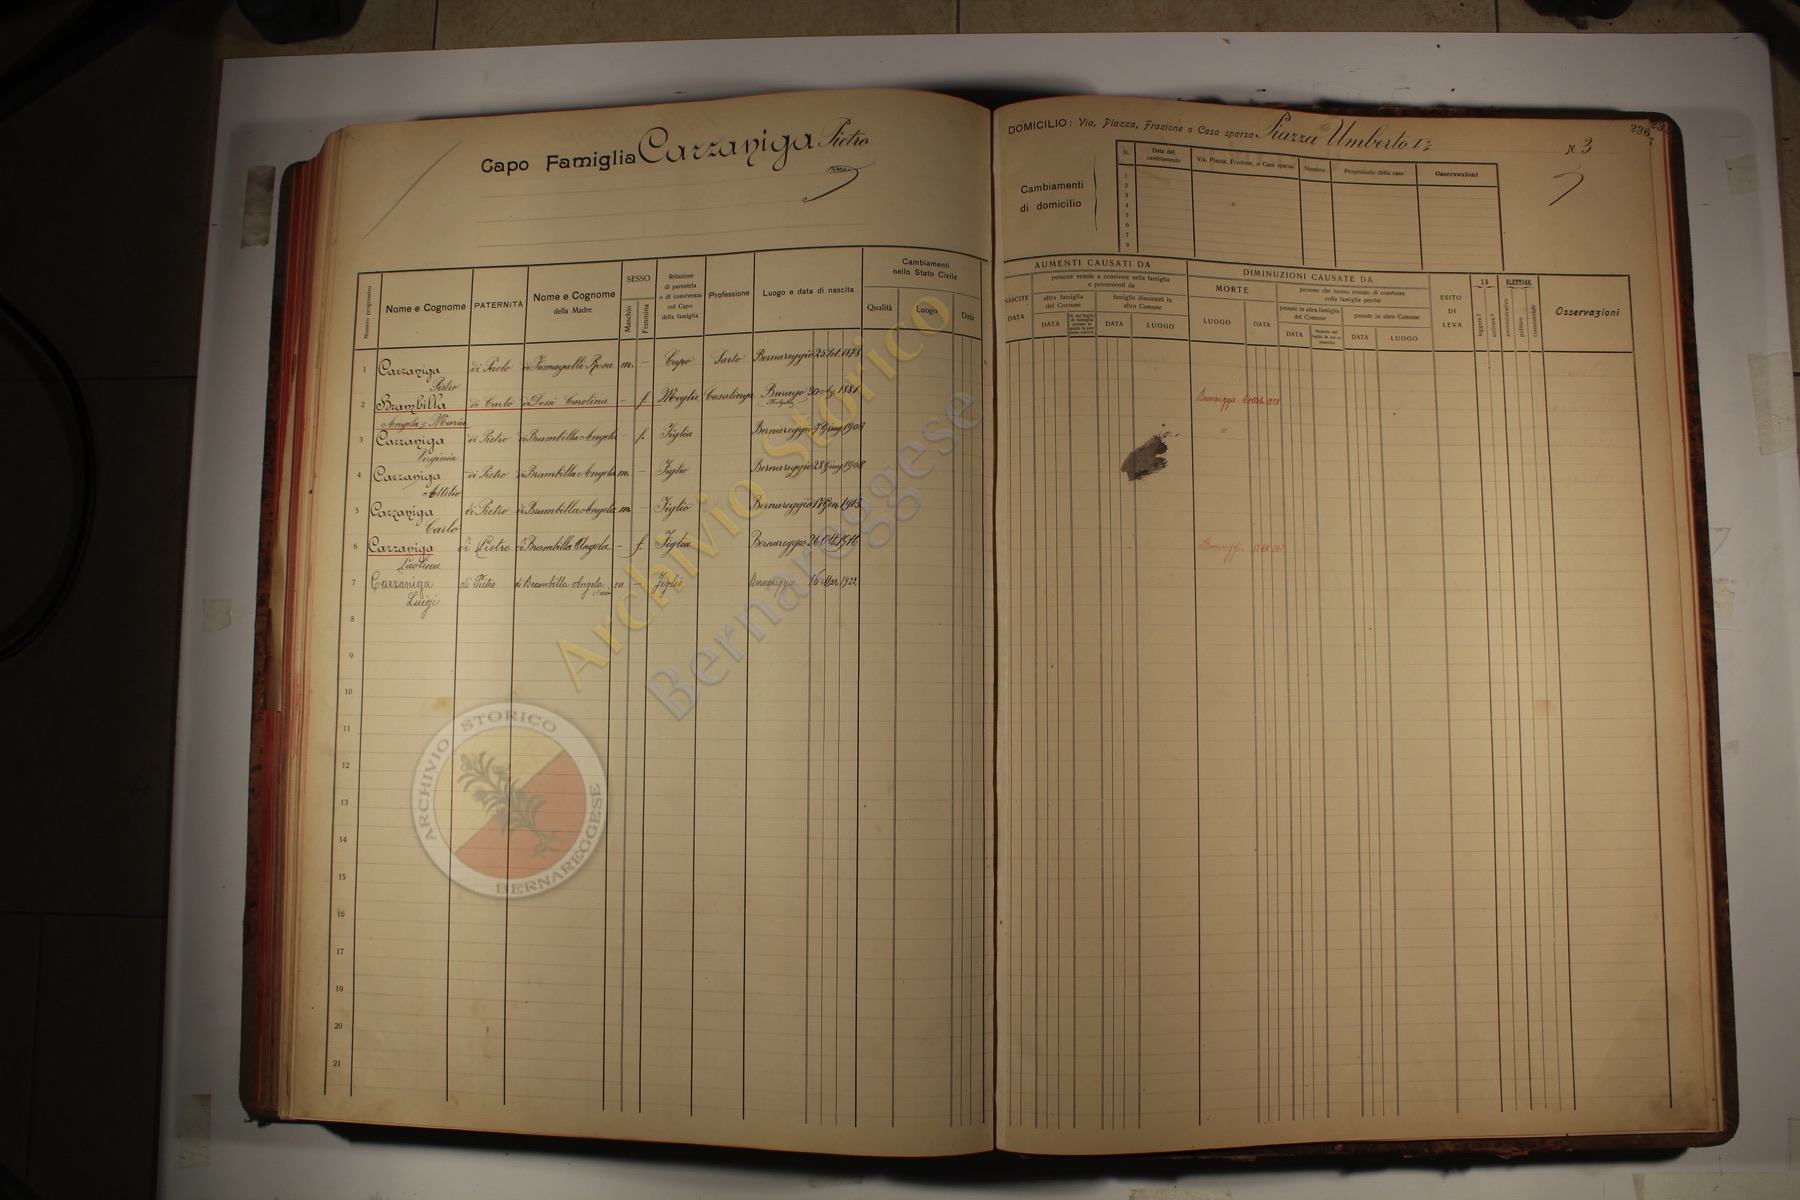 Capo Famiglia Cazzaniga Pietro
Numero progressivo
Nome e Cognome
PATERNITÀ
Nome e Cognome
della Madre
SESSO
Maschio
Femmina
Relazione
di parentela
o di convivenza
col Capo
della famiglia
Professione
Luogo e data di nascita
Cambiamenti
nello Stato Civile
Qualità
Luogo
Data
1 Cazzaniga di Paolo di Fumagalli Rosa m. - Capo Sarto Bernareggio
Pietro
2 Brambilla di Carlo di Dossi Carolina - f. Moglie Casalinga Burago 30 Ag. 1881
Angela Maria
3 Cazzaniga di Pietro di Brambilla Angela - f. Figlia Bernareggio 7 Giug.
Virginia
4 Cazzaniga di Pietro di Brambilla Angela m. - Figlio Bernareggio 28 Giug. 1908
Attilio
5 Cazzaniga di Pietro di Brambilla Angela m. - Figlio Bernareggio 17 Gen. 1913
Carlo
6 Cazzaniga di Pietro di Brambilla Angela - f. Figlia Bernareggio 26 Ott.
7 Cazzaniga di Pietro di Brambilla Angela m - Figlio Bernareggio 16 Mar. 1922
Luigi Maria
8
9
10
11
12
13
14
15
16
17
18
19
20
21
DOMICILIO: Via, Piazza, Frazione o Casa sparsa Piazza Umberto I° N. 3
236
Cambiamenti
di domicilio
N.
Data del
cambiamento
Via, Piazza, Frazione, o Casa sparsa
Numero
Proprietario della casa
Osservazioni
1
2
3
4
5
6
7
8
AUMENTI CAUSATI DA
NASCITE
DATA
persone venute a convivere nella famiglia
e provenienti da
altra famiglia
del Comune
DATA
famiglie dimoranti in
altro Comune
DATA
LUOGO
DIMINUZIONI CAUSATE DA
MORTE
LUOGO
DATA
persone che hanno cessato di convivere
colla famiglia perchè
passate in altra famiglia
del Comune
DATA
passate in altro Comune
DATA
LUOGO
ESITO
DI
LEVA
SA
leggere?
scrivere?
ELETTORE
amministrativo
politico
commerciale
Osservazioni
Bernareggio
Bernareggio
Archivio Storico
Bernareggese
ARCHIVIO STORICO
BERNAREGGESE